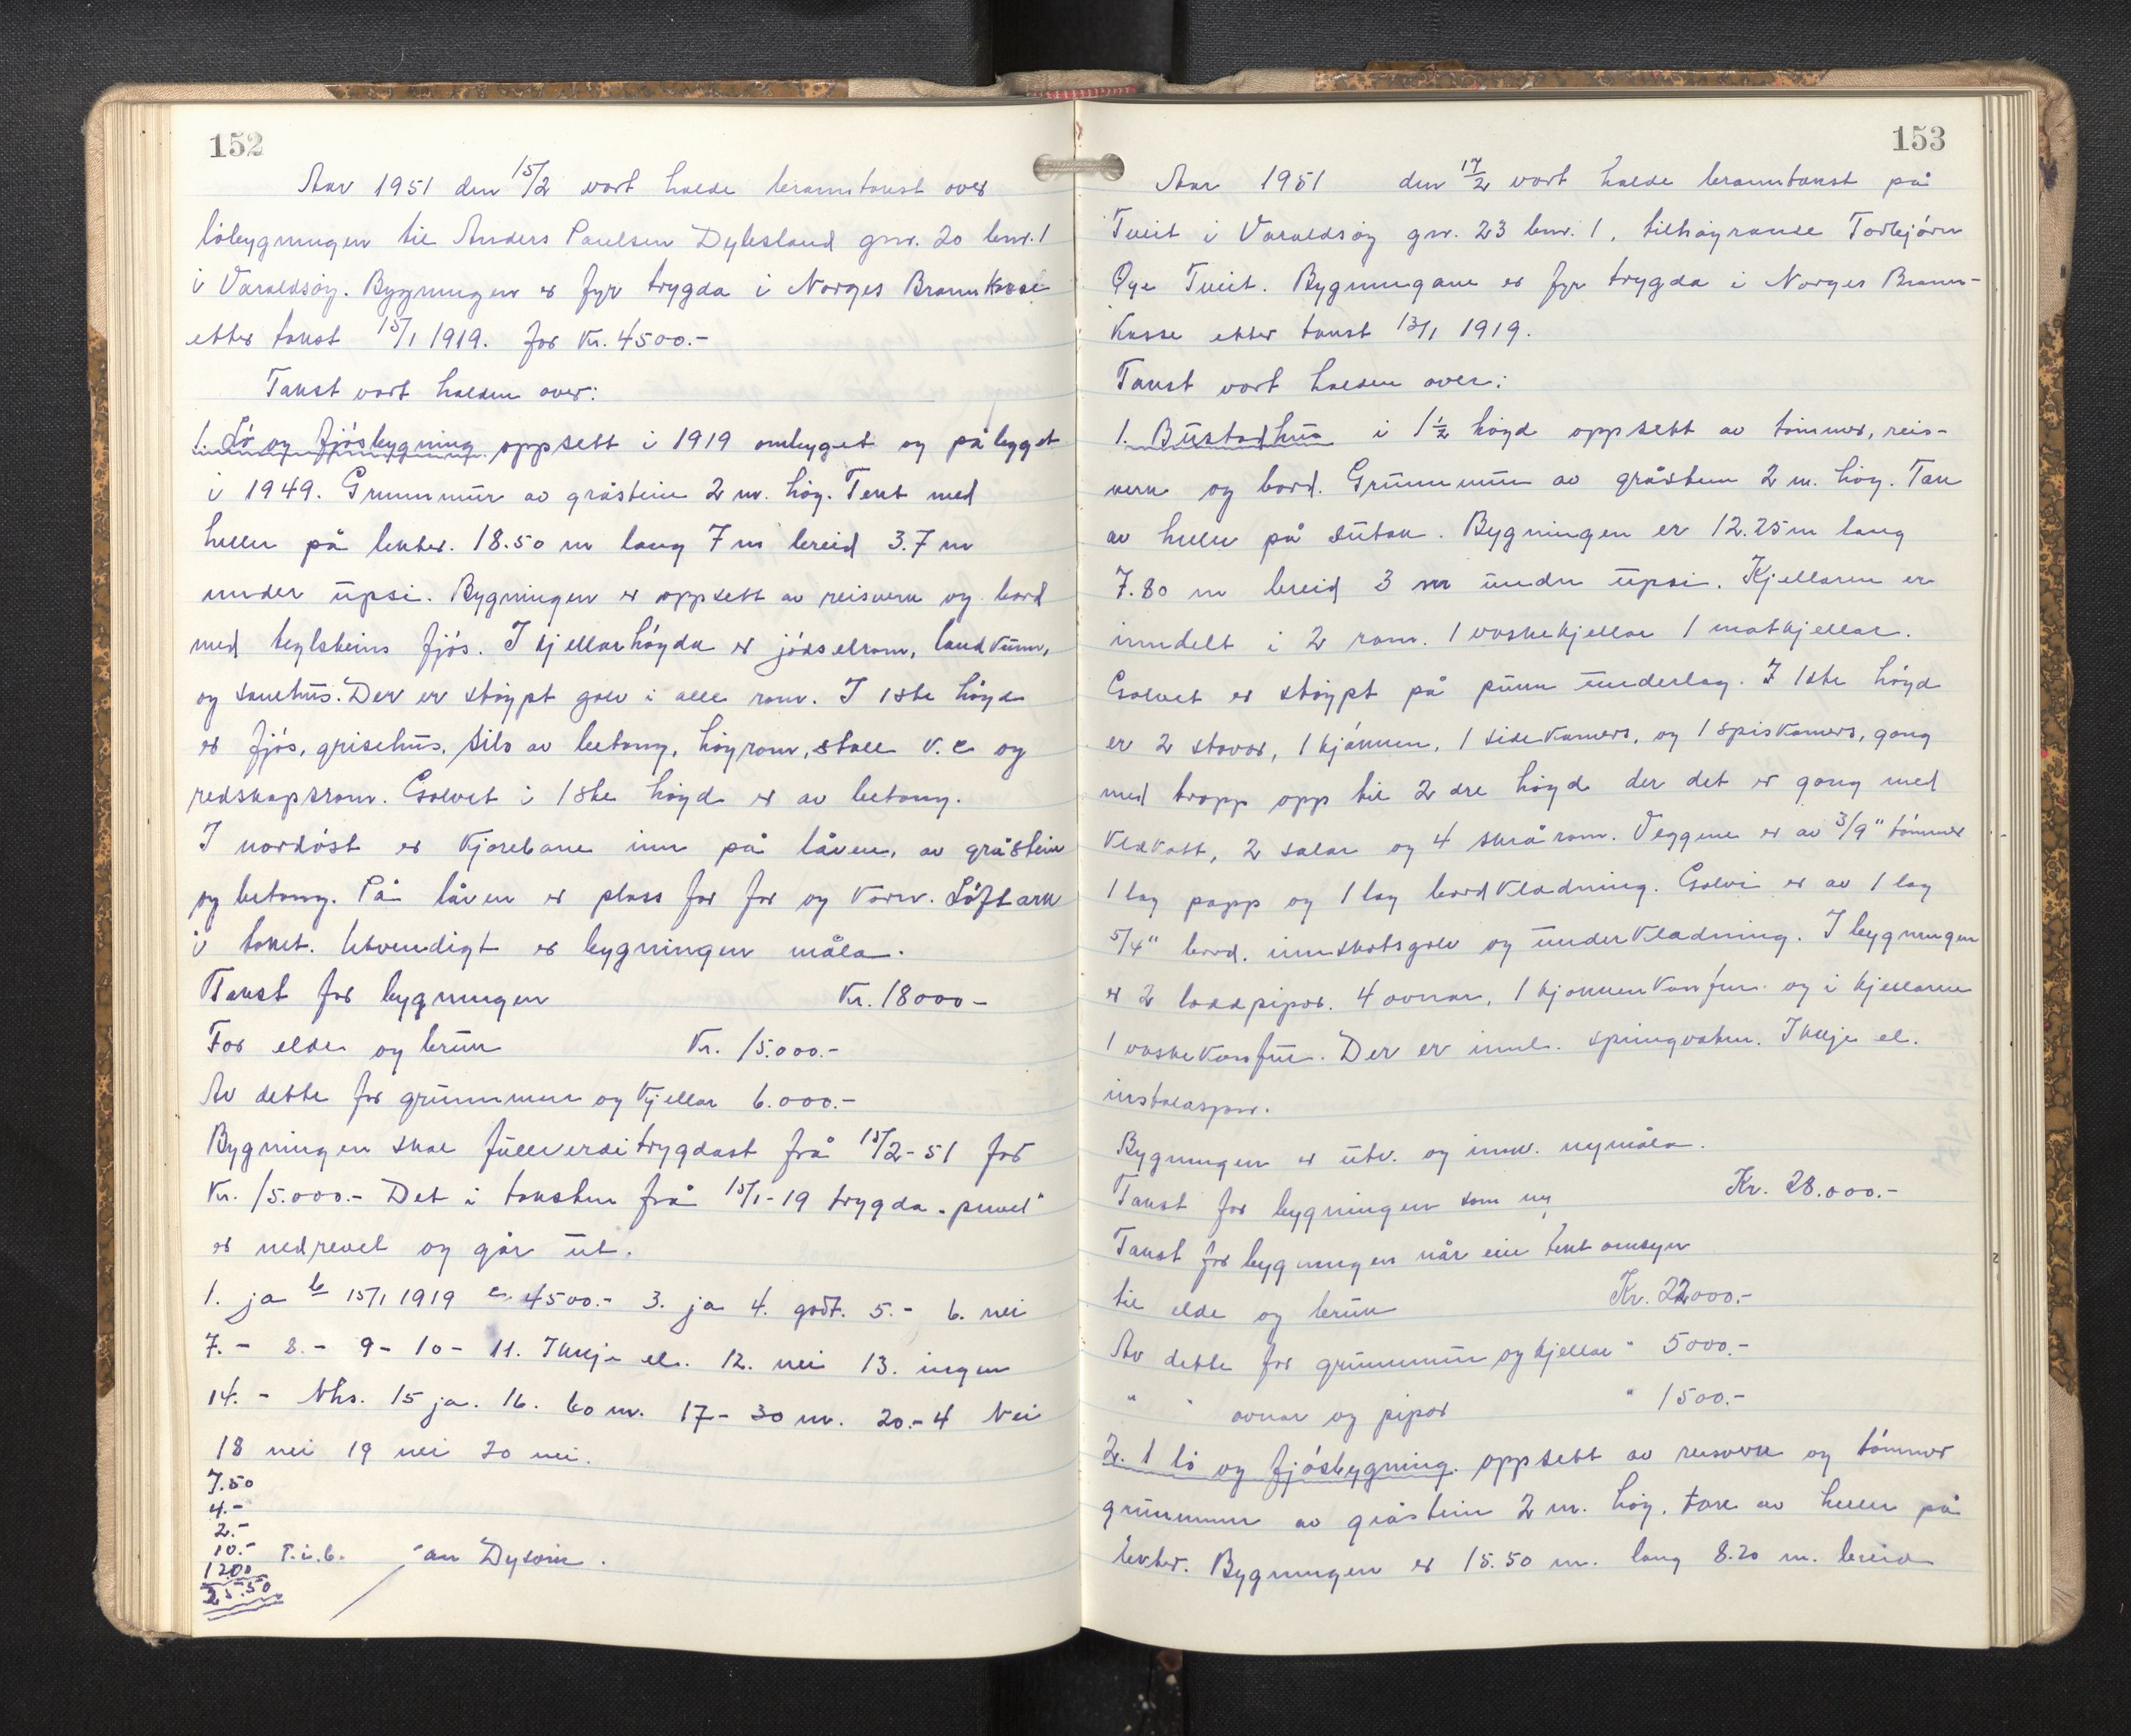 152
Aar 1951 den 15/2 vart halde branntakst over
løbygningen til Anders Paulsen Dybsland gnr. 20 bnr. 1
i Varaldsøy. Bygningen er fyr trygda i Norges Brannkasse
etter takst 15/1 1919. for Kr. 4500.-
Takst vart halden over:
1. Lø og fjøsbygning oppsett i 1919 ombyget og påbygget
i 1949. Grunnmur av gråstein 2 m. høg. Tekt med
heller på lekter. 18.50 m lang 7 m breid 3.7 m
under upsi. Bygningen er oppsett av reisverk og bord
med teglsteins fjøs. I kjellarhøgda er jødselrom, landkum,
og sauehus. Der er støypt golv i alle rom. I 1ste høgd
er fjøs, grisehus, silo av betong, høyrom, stall v. c og
redskapsrom. Golvet i 1ste høgd er av betong.
I nordøst er kjørebane inn på låven, av gråstein
og betong. På låven er plass for for og korn. Løftark
i taket. Utvendigt er bygningen måla.
Takst for bygningen Kr. 18000-
For elde og bruk Kr. 15.000.-
Av dette for grunnmur og kjellar 6.000.-
Bygningen skal fullverditrygdast frå 15/2-51 for
Kr. 15.000.- Det i taksten frå 15/1-19 trygda
er nedrevet og går ut.
1. ja b 15/1 1919 c. 4500.- 3. ja 4. godt. 5.- 6. nei
7.- 8.- 9- 10- 11. Ikkje el. 12. nei 13. ingen
14. - Nhs. 15 ja. 16. 60 m. 17- 30 m. 20.-4 Nei
18 nei 19 nei 20 nei.
7.50
4.-
2.-
10.- T.i.b.
12.00
25.50
153
Aar 1951 den 17/2 vart halde branntakst på
Tveit i Varaldsøy gnr. 23 bnr. 1. tilhøyrande Torbjørn
Øye Tveit. Bygningane er fyr trygda i Norges Brann-
kasse etter takst 13/1 1919.
Takst vart halden over:
1. Bustadhus i 1 1/2 høgd oppsett av tømmer, reis-
verk og bord. Grunnmur av gråstein 2 m. høg. Tak
av heller på sutak. Bygningen er 12.25 m lang
7.80 m breid 3 m under upsi. Kjellaren er
inndelt i 2 rom. 1 vaskekjellar 1 matkjellar.
Golvet er støypt på pukk underlag. I 1ste høgd
er 2 stovor, 1 kjøkken, 1 sidekamers, og 1 spiskamers, gang
med trapp opp til 2dre høgd der det er gang med
kledkott, 2 salar og 4 skrårom. Veggene er av 3/9" tømmer
1 lag papp og 1 lag bordkledning. Golvi er av 1 lag
5/4" bord. innskotsgolv og underkledning. I bygningen
er 2 loddpipor. 4 ovnar, 1 kjøkkenkomfur og i kjellaren
1 vaskekomfur. Der er innl. springvatn. Ikkje el.
instalasjon.
Bygningen er utv. og innv. nymåla.
Takst for bygningen som ny Kr. 28.000.-
Takst for bygningen når ein tek omsyn
til elde og bruk Kr. 22000.-
Av dette for grunnmur og kjellar " 5000.-
" " ovnar og pipor " 1500.-
2. 1 lø og fjøsbygning. oppsett av reisverk og tømmer
grunnmur av gråstein 2 m. høg. tak av heller på
lekter. Bygningen er 15.50 m. lang 8.20 m. breid